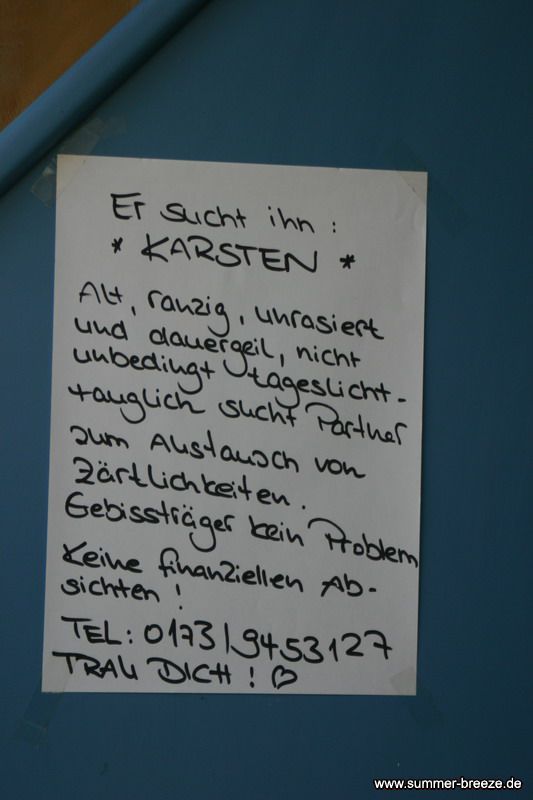 Er sucht ihn :
* KARSTEN *
Alt, ranzig, unrasiert
und dauergeil, nicht
unbedingt tageslicht-
tauglich sucht Partner
zum Austausch von
Zärtlichkeiten.
Gebissträger kein Problem
Keine finanziellen Ab-
sichten !
TEL: 0173/9453127
TRAU DICH ! ♡
www.summer-breeze.de